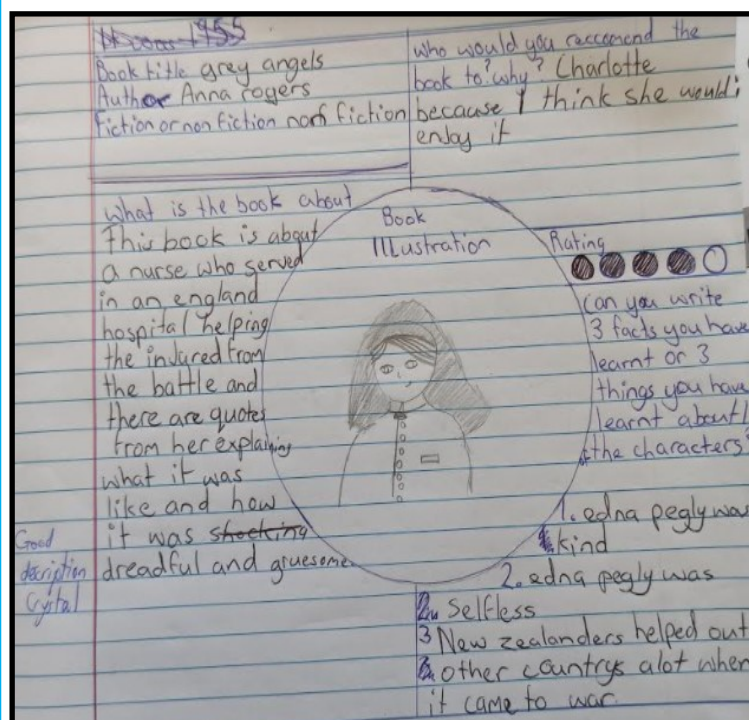 Book title grey angels
Author Anna rogers
Fiction or non fiction non fiction
who would you reccomend the
book to? why? Charlotte
because I think she would
enjoy it
what is the book about
This book is about
a nurse who served
in an england
hospital helping
the injured from
the battle and
there are quotes
from her explaining
what it was
like and how
it was shocking
dreadful and gruesome
Good
decription
Crystal
Book
Illustration
Rating
can you write
3 facts you have
learnt or 3
things you have
learnt about
the characters?
1. edna pegly was
kind
2. edna pegly was
selfless
3 New zealanders helped out
other countrys alot when
it came to war.